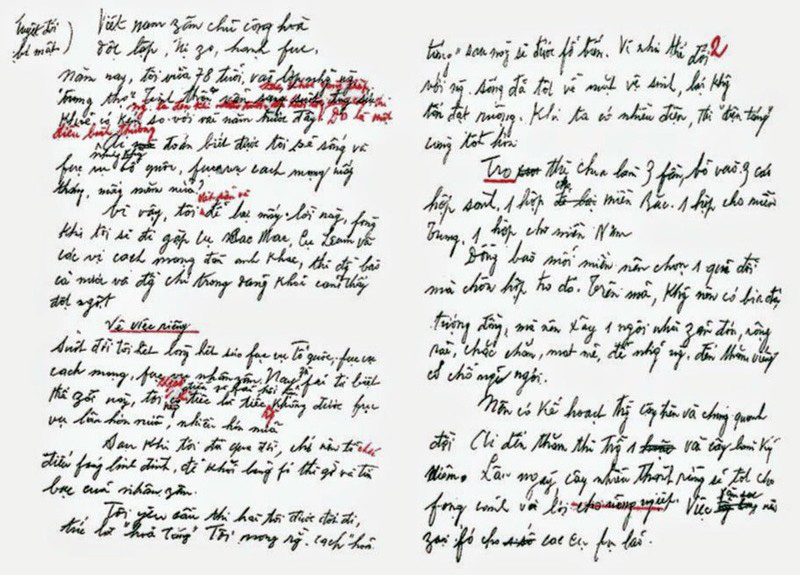 Tuyệt đối
bí mật)
Việt nam zân chủ cộng hoà
độc lập, tự zo, hạnh fúc.
Năm nay, tôi vừa 78 tuổi, vào lớp những ng.
"trung thọ". Tinh thần vẫn sáng suốt
khoẻ có kém so với vài năm trước đây. Đó là một
điều bình thường
Ai mà đoán biết được tôi sẽ sống và
fục vụ tổ quốc, fục vụ cách mạng mấy
tháng, mấy năm nữa?
Vì vậy, tôi để lại mấy lời này, fòng
khi tôi sẽ đi gặp cụ Các Mác, cụ Lênin và
các vị cách mạng đàn anh khác, thì đg bào
cả nước và đg chí trong đảng khỏi cảm thấy
đột ngột
Về việc riêng
Suốt đời tôi hết lòng hết sức fục vụ tổ quốc, fục vụ
cách mạng, fục vụ nhân zân. Nay zù fải từ biệt
thế zới này, tôi không có điều gì fải hối hận
chỉ tiếc là tiếc rằng không được fục
vụ lâu hơn nữa, nhiều hơn nữa
Sau khi tôi đã qua đời, chớ nên tổ chức
điếu fúng linh đình, để khỏi lãng fí thì zờ và tiền
bạc của nhân zân.
Tôi yêu cầu thi hài tôi được đốt đi,
tức là "hoả táng". Tôi mong rằng cách "hoả
2
táng" sau này sẽ được fổ biến. Vì như thế đối
với ng. sống đã tốt về mặt vệ sinh, lại không
tốn đất ruộng. Khi ta có nhiều điện, thì "điện táng"
càng tốt hơn.
Tro thì chia làm 3 fần, bỏ vào 3 cái
hộp sành. 1 hộp cho miền Bắc. 1 hộp cho miền
Trung. 1 hộp cho miền Nam
Đồng bào mỗi miền nên chọn 1 quả đồi
mà chôn hộp tro đó. Trên mả, không nên có bia đá
tượng đồng, mà nên xây 1 ngôi nhà zản đơn, rộng
rãi, chắc chắn, mát mẻ, để những ng. đến thăm viếng
có chỗ nghỉ ngơi.
Nên có kế hoạch trồng cây trên và chung quanh
đồi. Ai đến thăm thì trồng 1 vài cây làm kỷ
niệm. Lâu ngày, cây nhiều thành rừng sẽ tốt cho
fong cảnh và lợi cho nông nghiệp. Việc săn sóc nên
zao fó cho các cụ fụ lão.